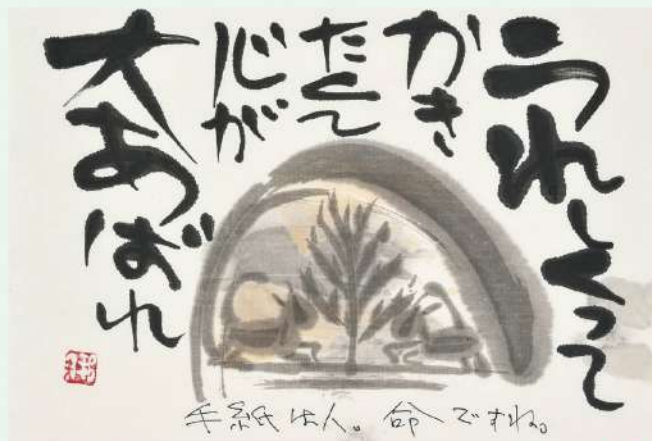 うれしくって
かき
たくて
心が
大あばれ
手紙は人。命ですね。